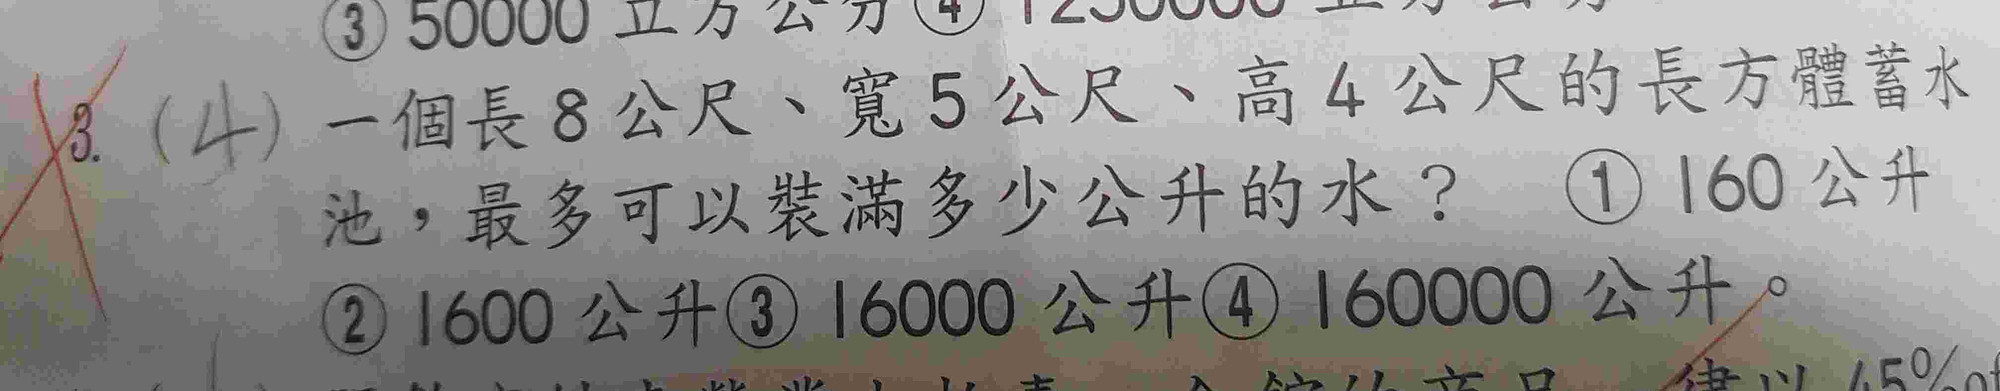 ③ 50000 立方公分④ 1250000 立方公分
3. (4) 一個長 8 公尺、寬 5 公尺、高 4 公尺的長方體蓄水
池，最多可以裝滿多少公升的水？ ① 160 公升
② 1600 公升③ 16000 公升④ 160000 公升。
律以 45% of